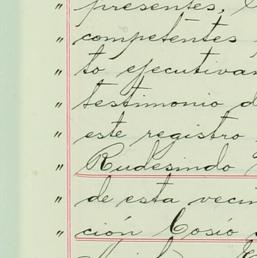 " presentes,
" competentes
" to ejecutivam
" testimonio d
" este registro
" Rudesindo
" de esta vecin
" ción Cosío